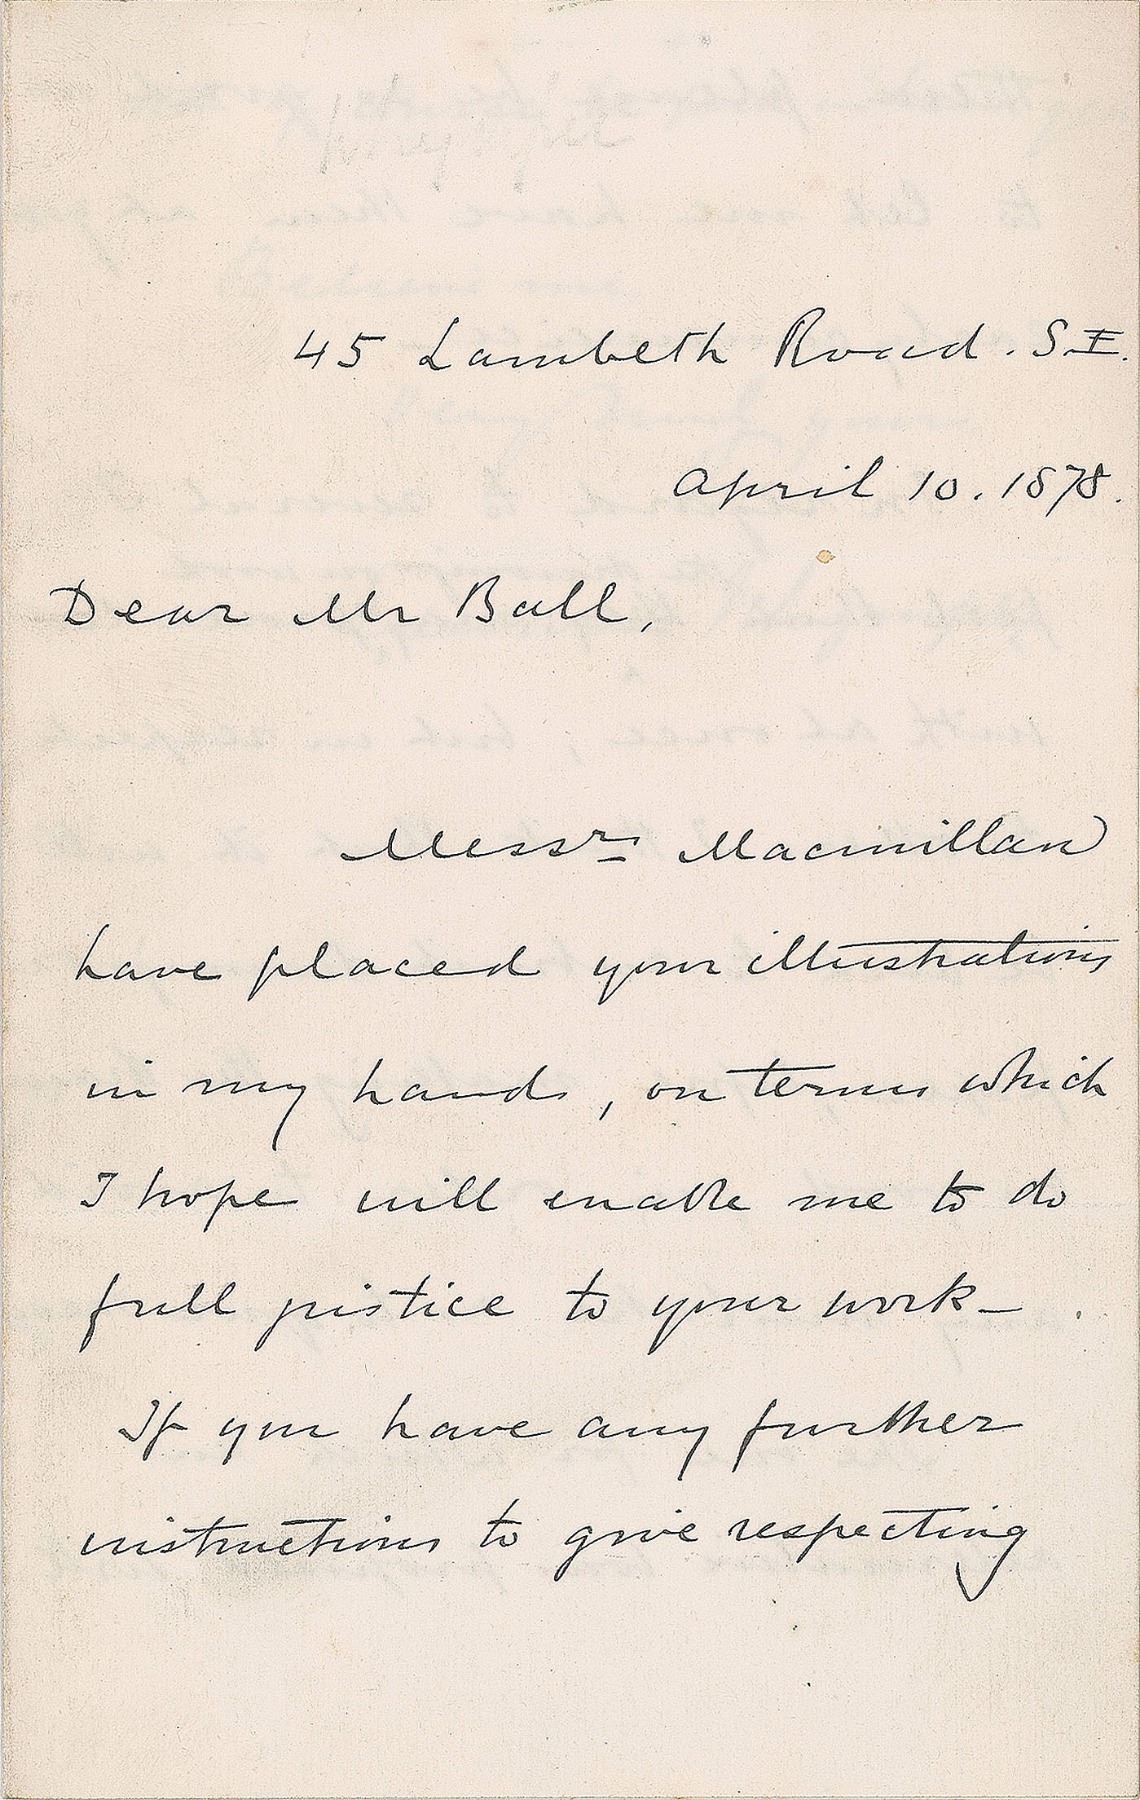 45 Lambeth Road. S.E.
April 10. 1878.
Dear Mr Ball,
Messrs Macmillan
have placed your illustrations
in my hands, on terms which
I hope will enable me to do
full justice to your work—
If you have any further
instructions to give respecting